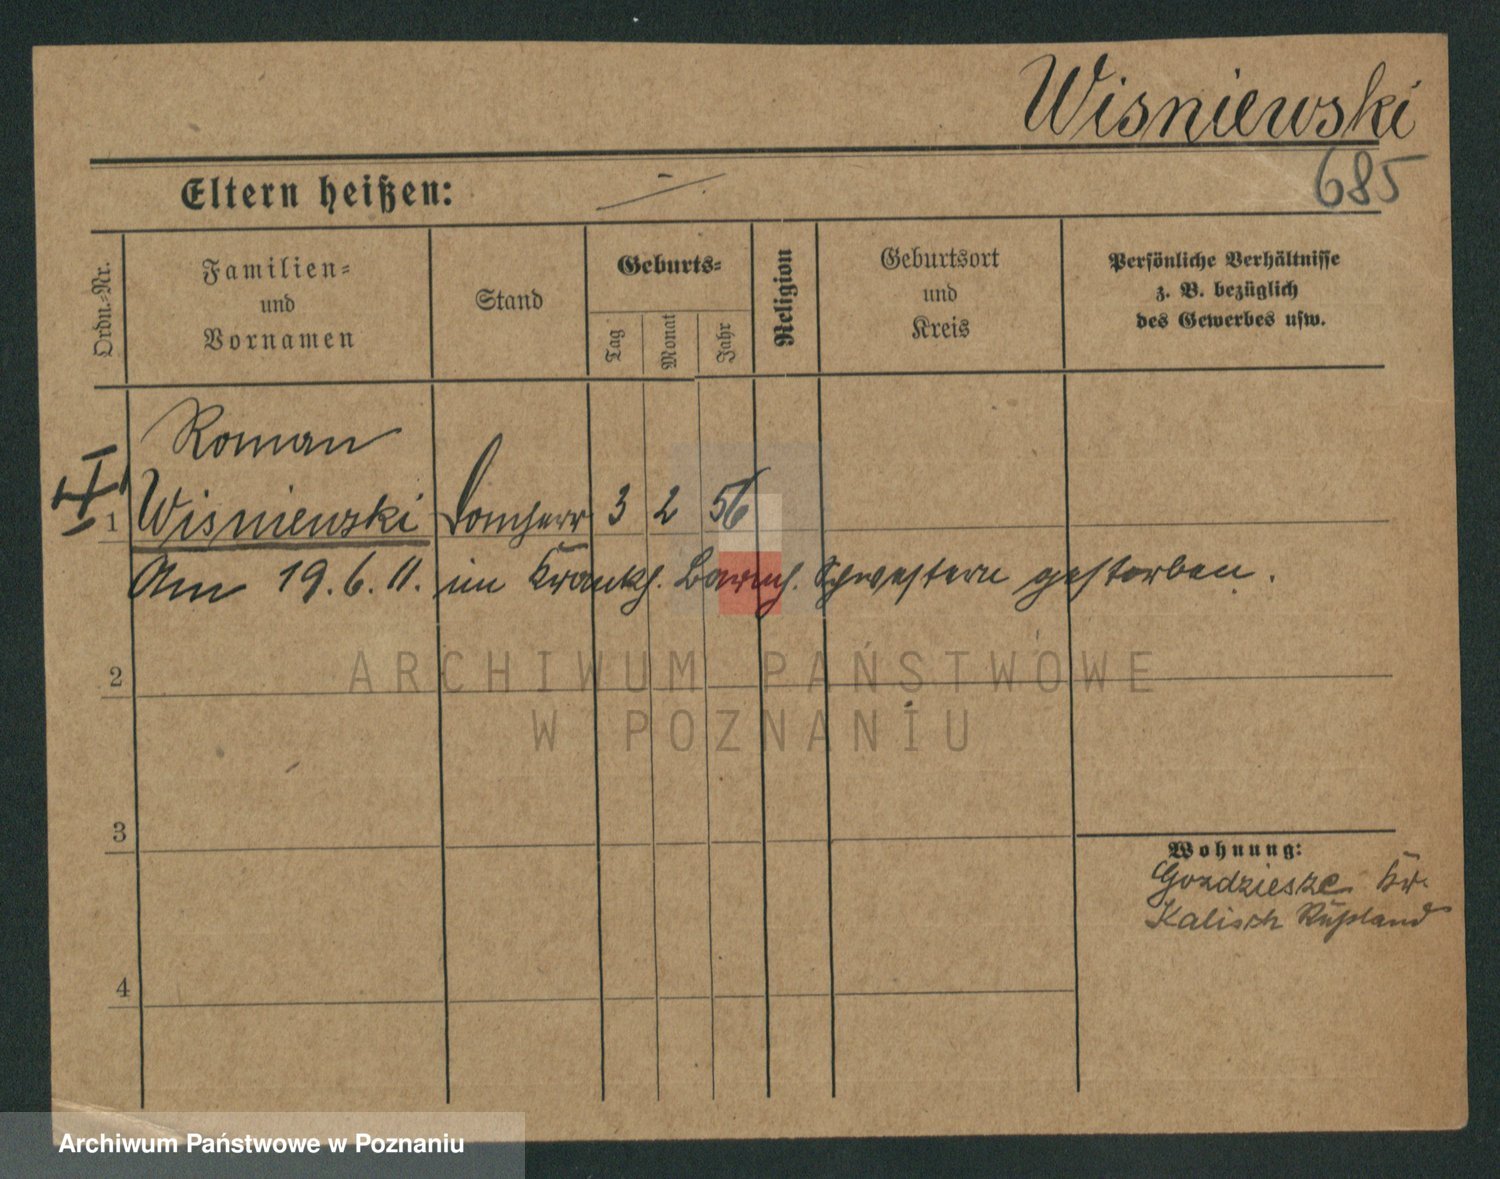 Wisniewski
685
Eltern heißen: —
Ordn.-Nr.
Familien-
und
Vornamen
Stand
Geburts-
Tag
Monat
Jahr
Religion
Geburtsort
und
Kreis
Persönliche Verhältnisse
z. B. bezüglich
des Gewerbes usw.
Roman
1 Wisniewski Domherr 3 2 56
Am 19.6.11. im Krankh. Barmh. Schwestern gestorben.
2
3
4
Wohnung:
Gozdzieszke Kr.
Kalisch Rußland
ARCHIWUM PAŃSTWOWE
W POZNANIU
Archiwum Państwowe w Poznaniu